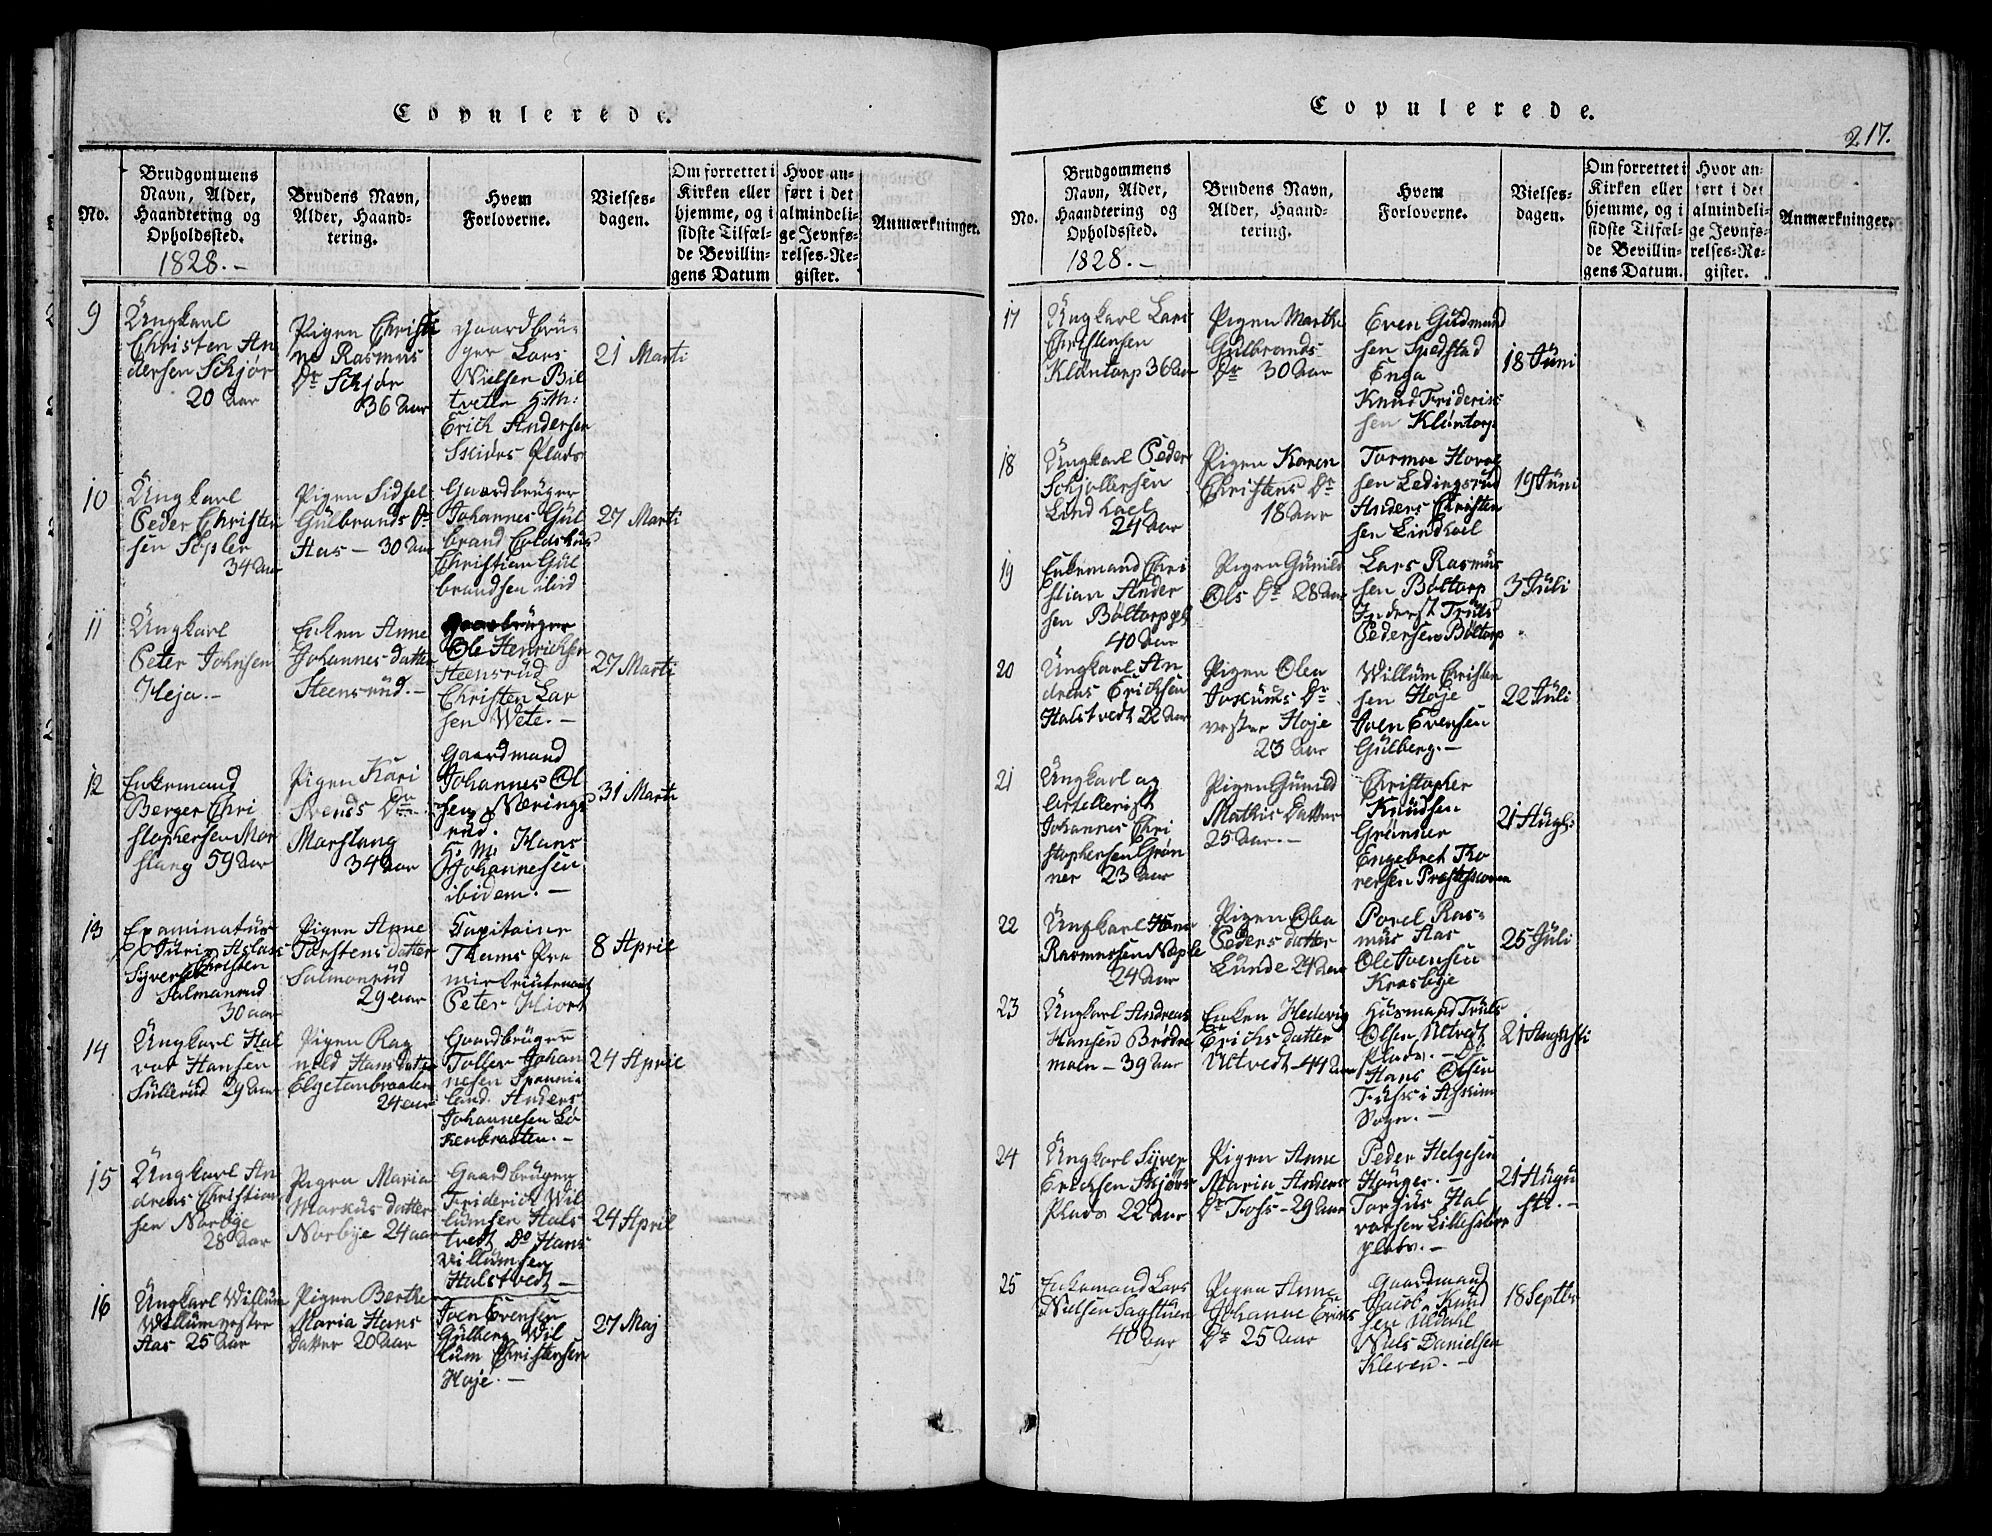 Copulerede.
No.
Brudgommens
Navn, Alder,
Haandtering og
Opholdssted.
1828.-
Brudens Navn,
Alder, Haand-
tering.
Hvem
Forloverne.
Vielses-
dagen.
Om forrettet i
Kirken eller
hjemme, og i
sidste Tilfæl-
de Bevillin-
gens Datum
Hvor an-
ført i det
almindeli-
ge Jevnfø-
relses-Re-
gister.
Anmærkninger.
9
Ungkarl
Christen An
dersen Schjør
20 Aar
Pigen Christi
ne Rasmus
Dr Schjør
36 Aar
Gaardbrü-
ger Lars
Nielsen Bil
tvete H:M:
Erick Andersen
Plads
21 Marti
10
Ungkarl
Peder Christen
sen
34 Aar
Pigen Sidsel
Gülbrands Dr
Haas - 30 Aar
Gaardbrüger
Johannes Gül
brand
Christian Gül
brandsen ibid
27 Marti
11
Ungkarl
Peter Johnsen
Heja.-
Enken Anne
Johannes datter
Steensrüd.-
Gaarbrüger
Ole Henrichsen
Steensrüd
Christen Lar
sen Wete.-
27 Marti
12
Enkemand
Berger Chri
stophersen Mor
stang 59 Aar
Pigen Kari
Svends Dr
Morstang
34 Aar
Gaardmand
Johannes Ol
sen Nærings
rud.
H: M: Hans
Johannesen
ibidem.-
31 Marti
13
Examinatus
Juris Aslac
Syversen Christen
Salmanrud
30 aar
Pigen Anne
Torstens datter
Salmonrud
29 aar
Capitaine
Thams Pre
mier Lieutenant
Peter Hiort
8 April
14
Ungkarl Hal
vor Hansen
Süllerud 29 Aar
Pigen Rag
nild Hans datter
Elgetanbraaten
24 aar
Gaardbrüger
Toller Johan
nesen
land. Anders
Johannesen Lø
kenbraaten.-
24 April
15
Ungkarl An
dreas Christian
sen Norbye
28 Aar
Pigen Maria
Markus datter
Norbye 24 aar
Gaardbrüger
Friderick Wil
lumsen Hals
tvedt Do Hans
Villumsen
Halstvedt -
24 April
16
Ungkarl Willum
Willum
Aas 25 Aar
Pigen Berthe
Maria Hans
datter 20 Aar
Joen Evensen
Gülberg Wil
lum Christensen
Høje.-
27 Maj
Copulerede.
217.
No.
Brudgommens
Navn, Alder,
Haandtering og
Opholdssted.
1828.-
Brudens Navn,
Alder, Haand-
tering.
Hvem
Forloverne.
Vielses-
dagen.
Om forrettet i
Kirken eller
hjemme, og i
sidste Tilfæl-
de Bevillin-
gens Datum.
Hvor an-
ført i det
almindeli-
ge Jevnfø-
relses-Re-
gister.
Anmærkninger.
17
Ungkarl Lars
Christensen
Kløntorp 36 Aar
Pigen Marthe
Gulbrands
Dr 30 Aar
Even Gudmund
sen Spedstad
Enga
Knud Frideric
sen Kløntorp
18 Juni
18
Ungkarl Peder
Schjollersen
Lindhoel
24 Aar
Pigen Karen
Christens Dr
18 Aar
Tormoe Hovel
sen Ledingsrud
Anders Christen
sen Lindhoel
19 Juni
19
Enkemand Chri
stian Ander
sen Bøltorp
40 Aar
Pigen Gunild
Ols Dr 28 Aar
Lars Rasmus
sen Bøltorp
Inderst Truls
Pedersen Bøltorp
3 Juli
20
Ungkarl An
dreas Ericksen
Halstvedt 22 Aar
Pigen Olea
Dr
vester Høje
23 Aar
Willum Christen
sen Høje
Joen Evensen
Gülberg.-
22 Juli
21
Ungkarl og
Artellerist
Johannes Chri
stophersen Grøn
ner 23 Aar
Pigen Gunild
Mathis Datter
25 Aar.-
Christopher
Knudsen
Grønner
Engebret Tho
rersen
21 Augt:
22
Ungkarl Hans
Rasmussen
24 Aar
Pigen
Peders datter
Lunde 24 Aar
Povel Ras-
mus Aas
Ole Ivensen
Krosbye
25 Juli
23
Ungkarl Andreas
Hansen Brødre
moen - 39 Aar
Enken Hedevig
Erichs datter
Utvedt - 44 Aar
Husmand Truls
Olsen Utvedt
Plads. - Do
Hans Olsen
i Askim
Sogn.-
21 Augusti
24
Ungkarl Syver
Ericksen Skjørs
Plads 22 Aar
Pigen Anne
Maria Anders
Dr Foss - 29 Aar
Peder Helgesen
Hanger.-
Torgius Hal
varsen
plads.-
21 Augu
sti.-
25
Enkemand Lars
Nielsen Sagstuen
40 Aar
Pigen Anne
Johanne Ericks
Dr 25 Aar
Gaardmand
Jacob Knud
sen Uldahl
Niels Danielsen
Kleven.-
18 Septbr